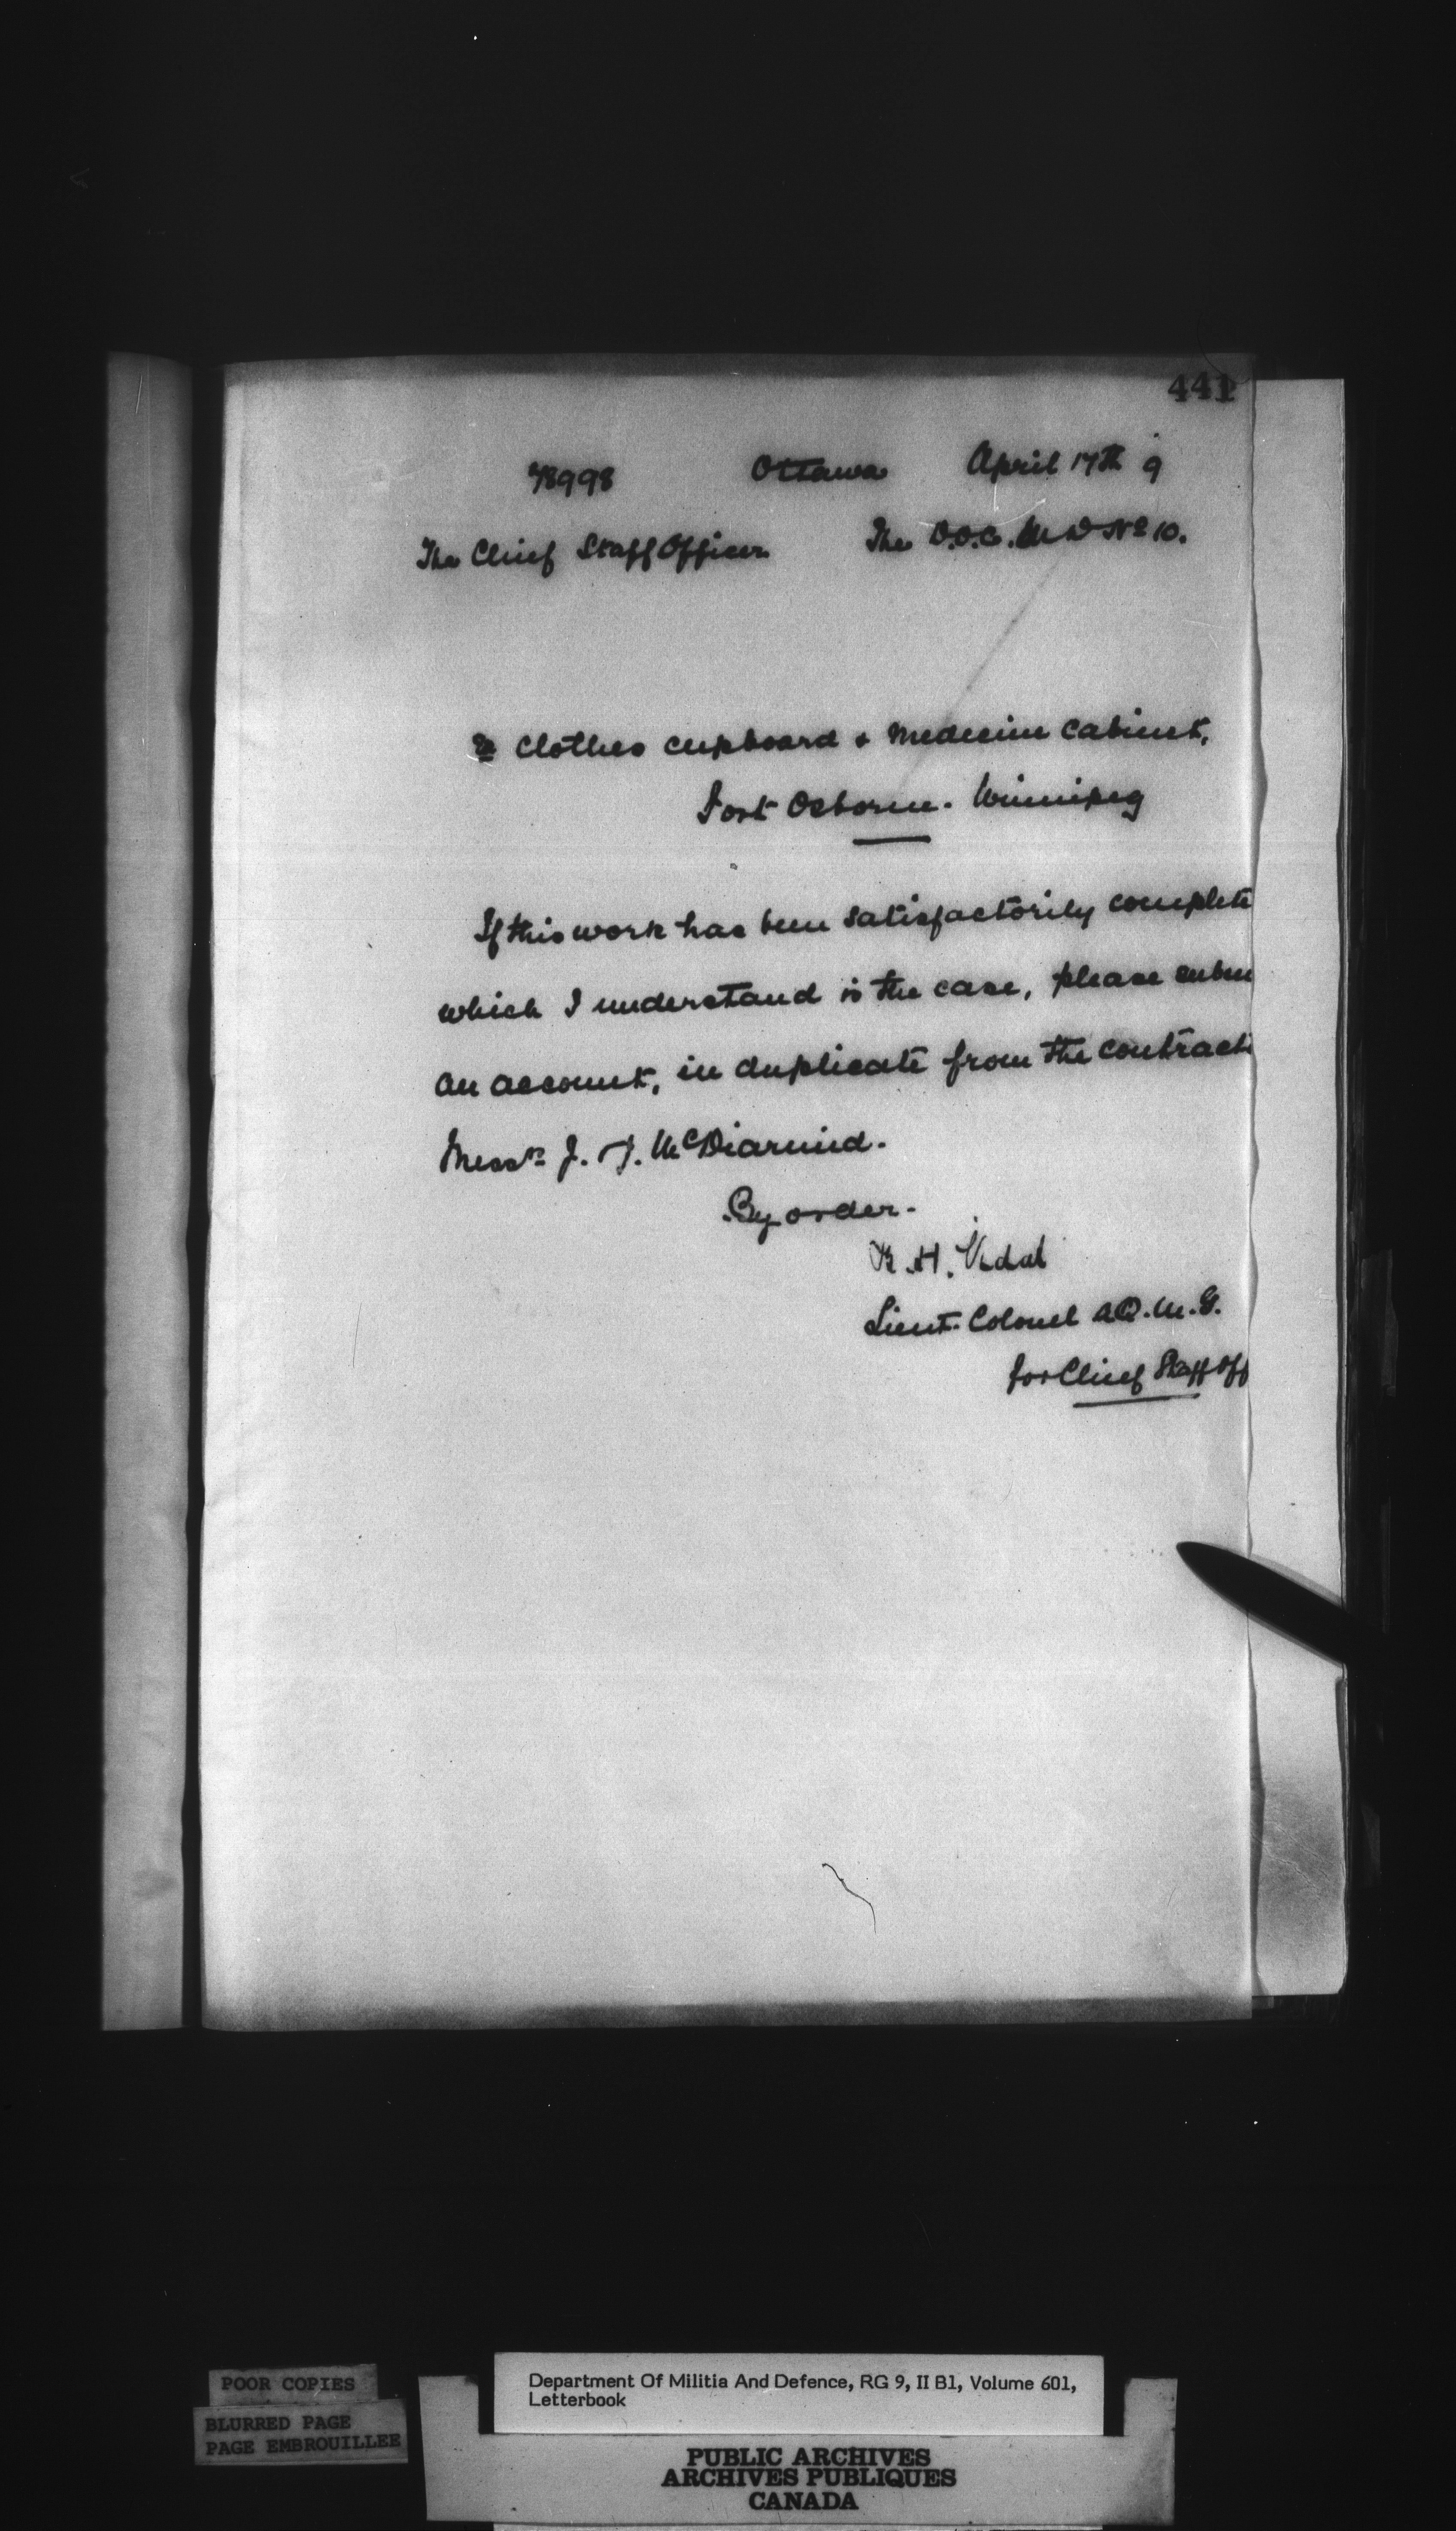 441
78998 Ottawa April 17th 9
The Chief Staff Officer The D.O.C. M D No 10.
Re Clothes cupboard & medecine cabinet,
Fort Osborne. Winnipeg
If this work has been satisfactorily complete
which I understand is the case, please subm
an account, in duplicate from the contract
Messrs J. McDiarmid.
By order.
H. Vidal
Lieut. Colonel A Q. M. G.
for Chief Staff Off
POOR COPIES
BLURRED PAGE
PAGE EMBROUILLEE
Department Of Militia And Defence, RG 9, II B1, Volume 601,
Letterbook
PUBLIC ARCHIVES
ARCHIVES PUBLIQUES
CANADA